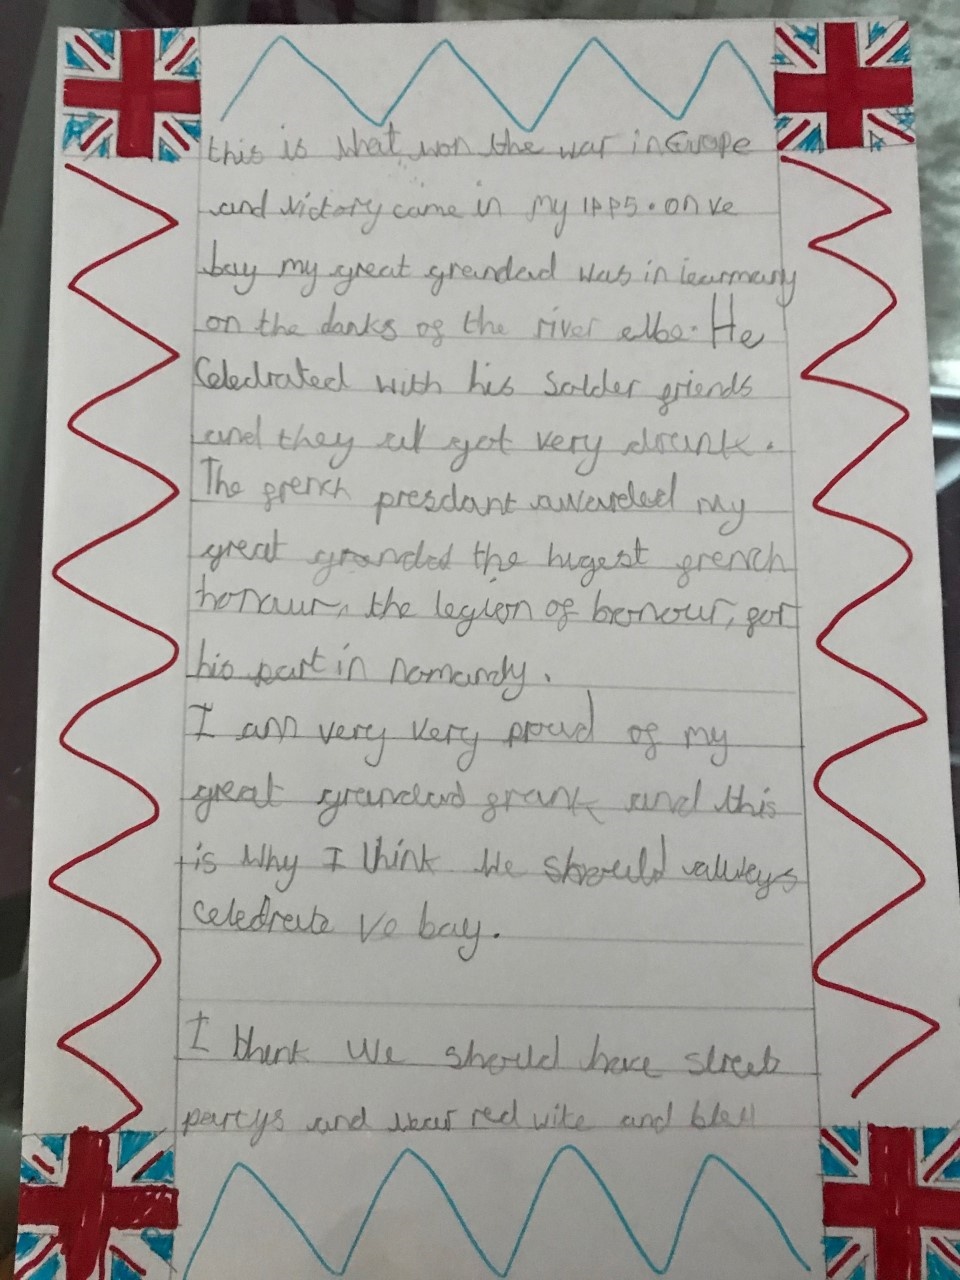 this is what won the war in Europe
and victory came in my 1PP5. on ve
bay my great grandad was in iearmany
on the danks of the river elbe. He
Celedrated with his Solder friends
and they all got very drunk.
The french presdant awarded my
great grandad the higest french
honour, the legion of bonour, for
his part in Nomandy.
I am very very proud of my
great grandad frank and this
is Why I think We should always
celedrate Ve bay.
I think We should have street
partys and wear red wite and blell